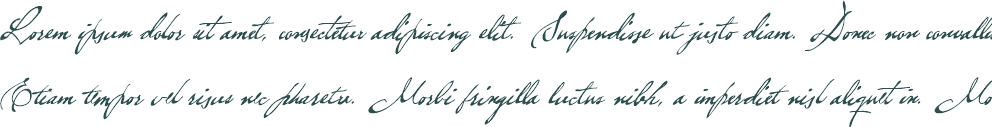 Lorem ipsum dolor sit amet, consectetur adipiscing elit. Suspendisse ut justo diam. Donec non convallis
Etiam tempor vel risus nec pharetra. Morbi fringilla luctus nibh, a imperdiet nisl aliquet in. Mo